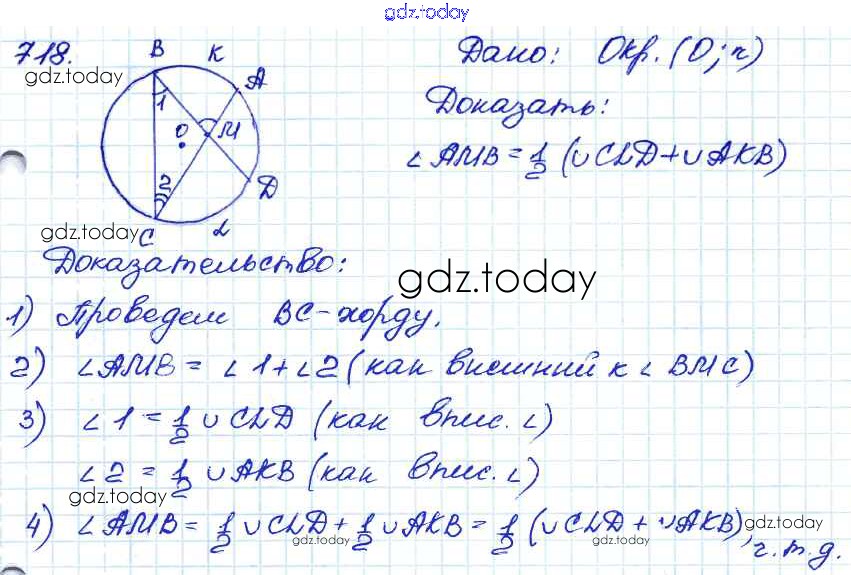 gdz.today
718.
gdz.today
B K A
1
O M
2
D
C L
gdz.today
Дано: Окр. (O; r)
Доказать:
∠ AMB = 1/2 (∪CLD + ∪AKB)
Доказательство:
gdz.today
1) Проведем BC - хорду.
2) ∠AMB = ∠1 + ∠2 (как внешний к ∠ BMC)
3) ∠1 = 1/2 ∪ CLD (как впис. ∠)
∠2 = 1/2 ∪ AKB (как впис. ∠)
gdz.today
4) ∠AMB = 1/2 ∪CLD + 1/2 ∪AKB = 1/2 (∪CLD + ∪AKB), ч.т.д.
gdz.today gdz.today gdz.today